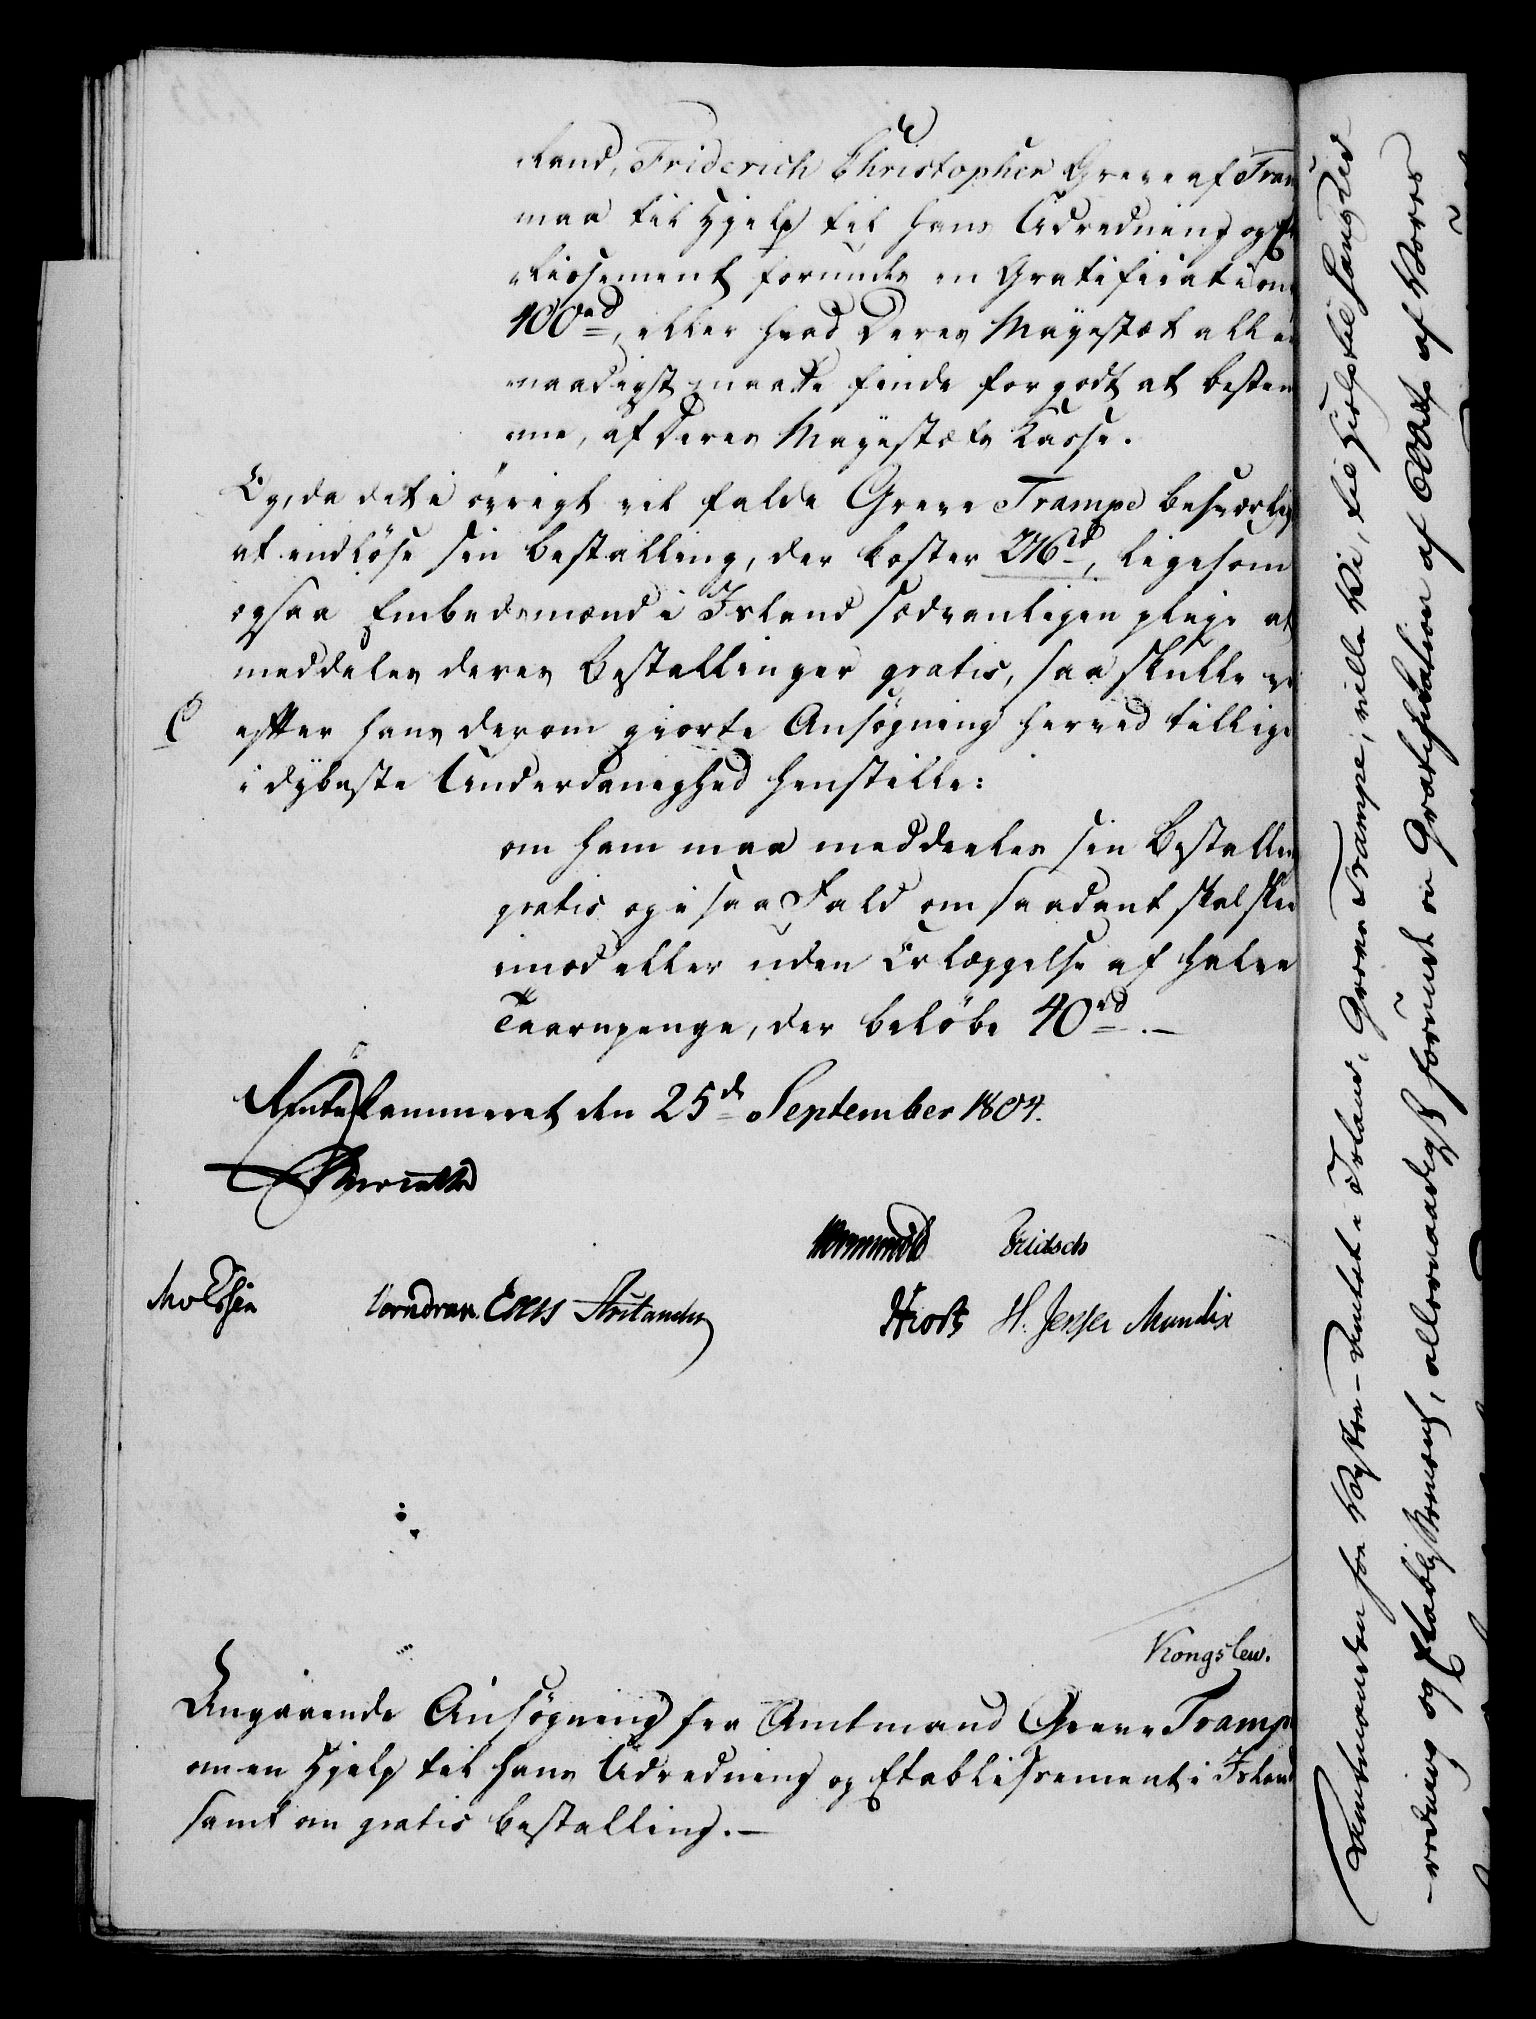 land, Friderich Christopher Greve af Tram
maa til Hjelp til hans Udredning og Et
blissement forundes en Gratification
400rd, eller hvad Deres Mayestæt aller
naadigst maatte finde for godt at bestem
me, af Deres Mayestæts Kasse.
Og, da det i øvrigt vil falde Greve Trampe besværlig
at indløse sin Bestalling, der koster 216rd, ligesom
ogsaa Embedsmænd i Island sædvanligen pleje at
meddeles deres Bestallinger gratis, saa skulle vi
C efter hans derom giorte Ansøgning herved tillige
i dybeste Underdanighed henstille:
om ham maa meddeeles sin Bestalling
gratis og i saa Fald om saadant skal skee
imod eller uden Erlæggelse af halve
Taarnpenge, der beløbe 40rd.
Rentekammeret den 25d September 1804.
Reventlow
Wormskiold Fridsch
MvEssen Vorndran. Eyers Knutsander
Hiort H. Jensen Mandix
Kongslew.
Angaaende Ansøgning fra Amtmand Greve Tramp
om en Hjelp til hans Udredning og Etablissement i Island
samt om gratis Bestalling.
Amtmanden for Vester-Amtet i Island, Greve Trampe, ville Vi, til Hielp til hans Ud
-redning og Etablissement, allernaadigst forundt en Gratification af 600 rd af Vores